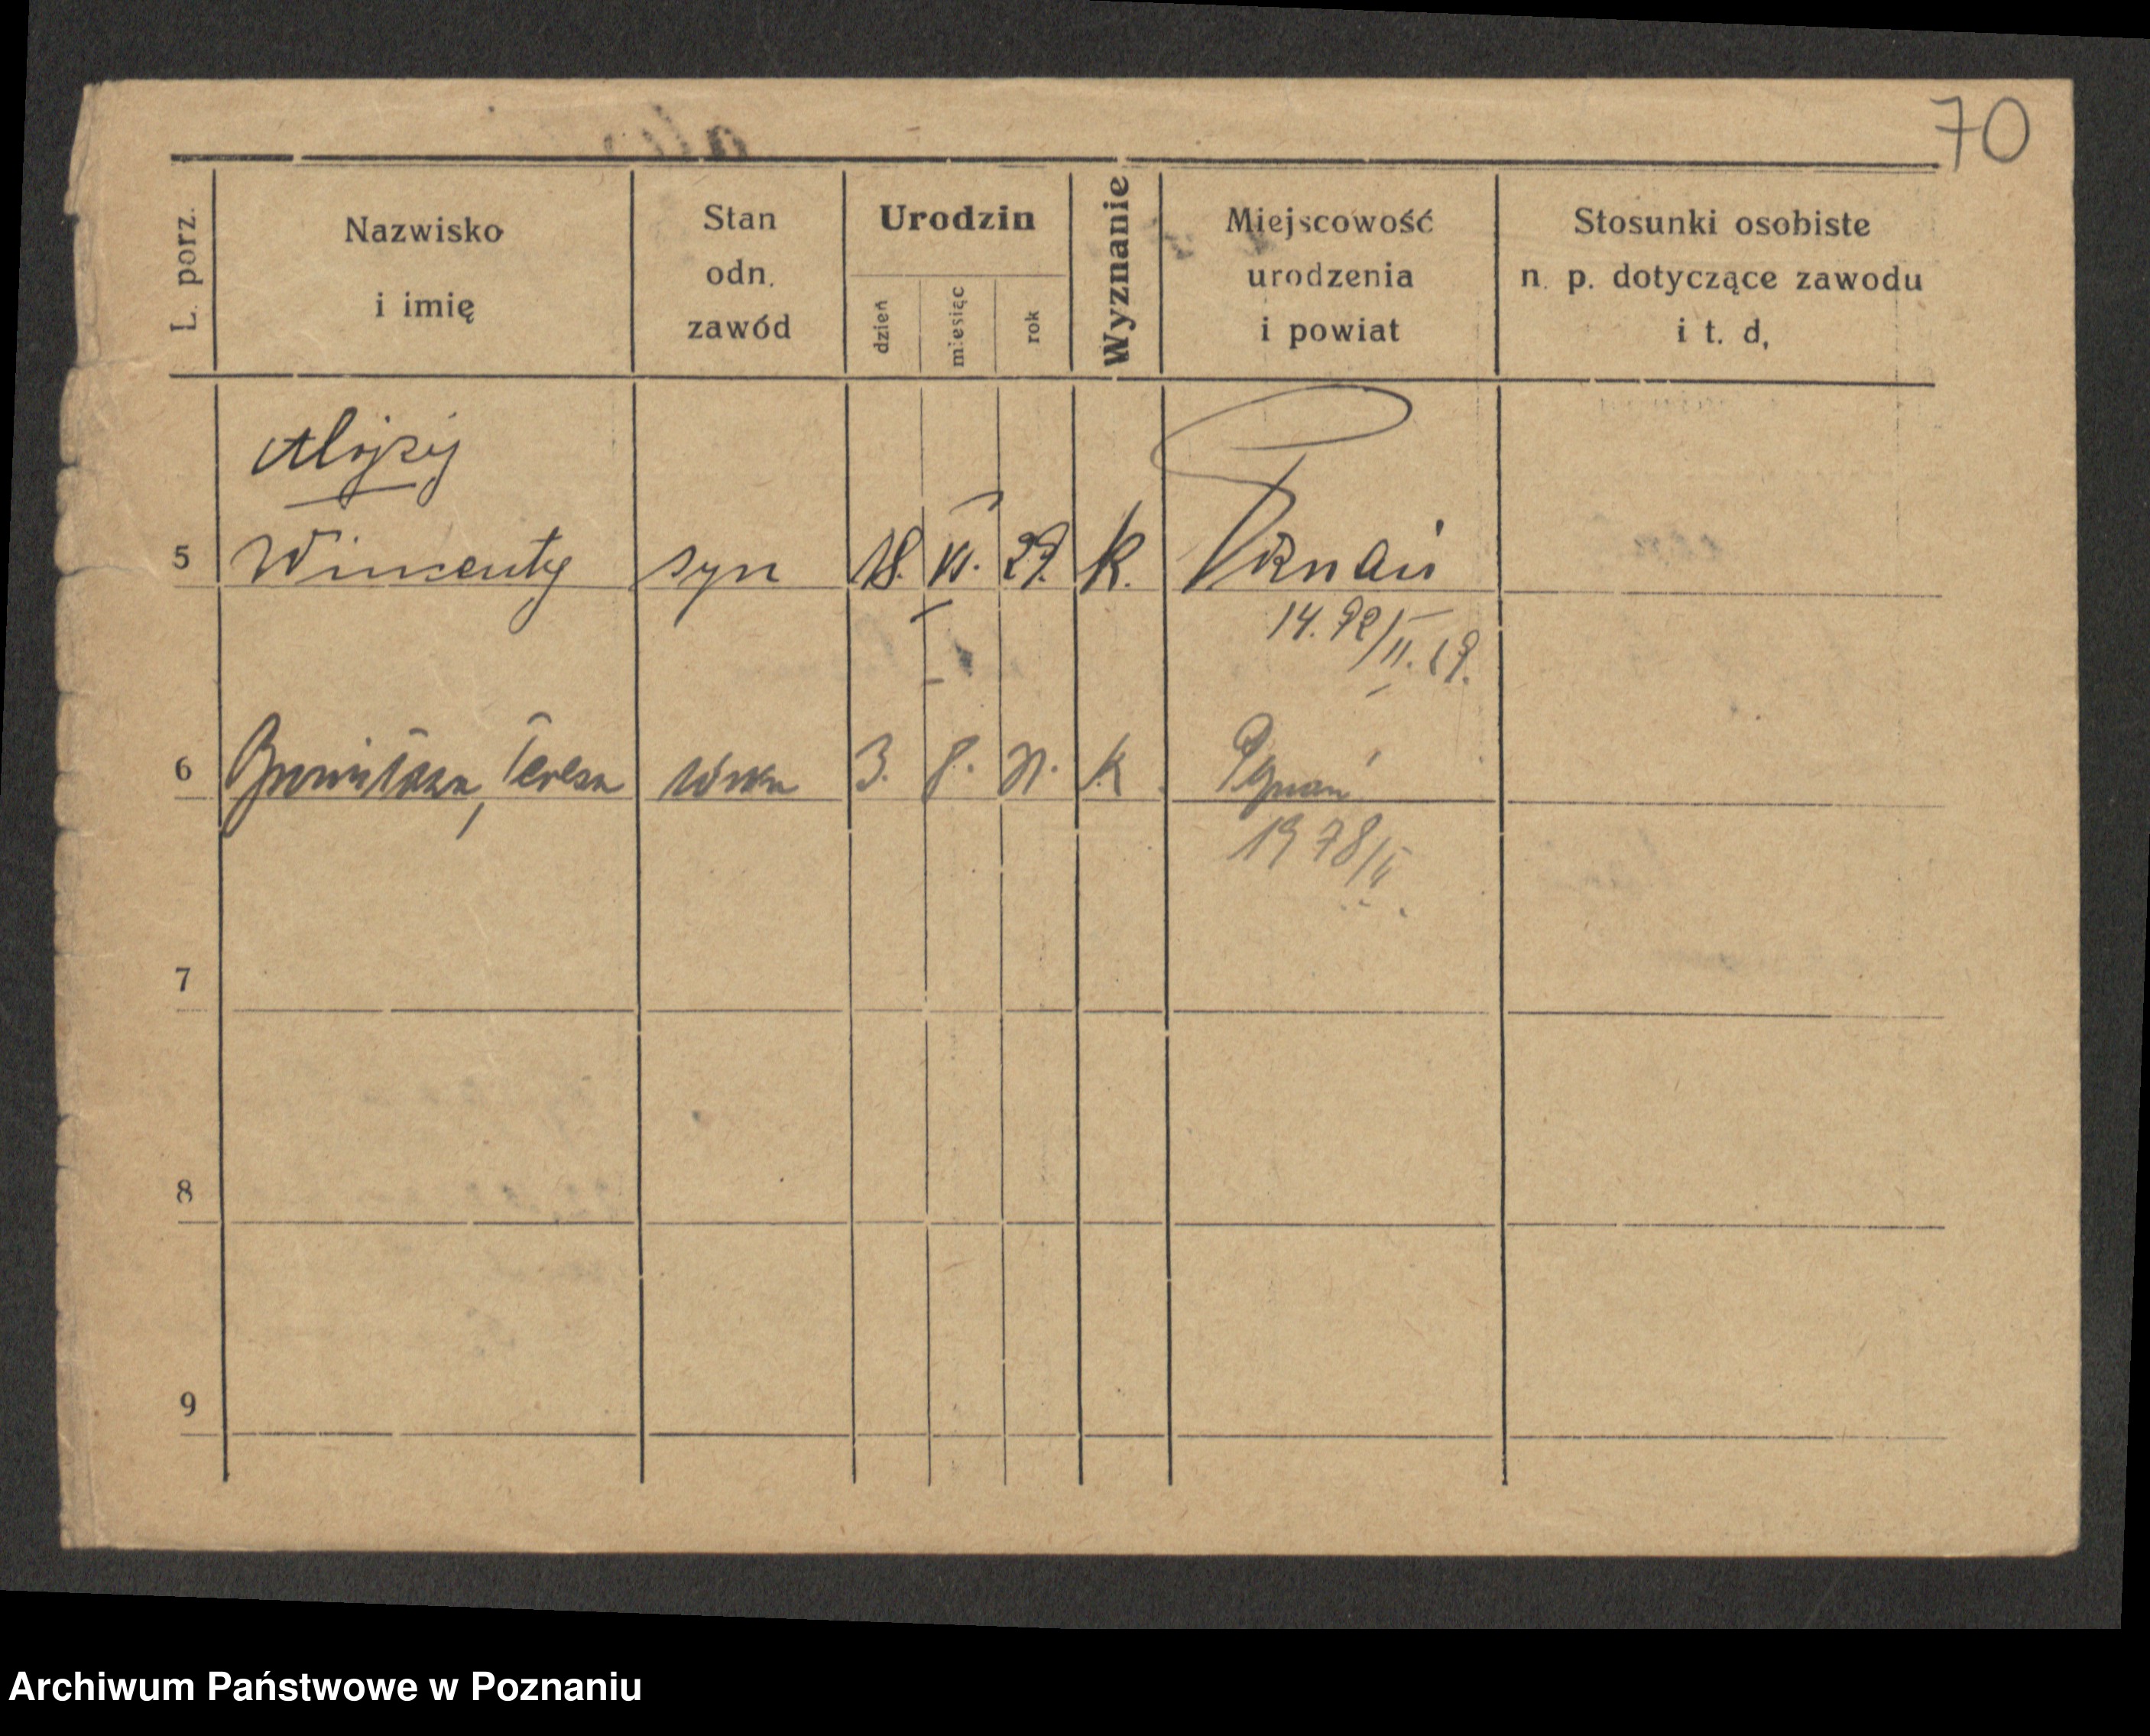 70
L. porz.
Nazwisko
i imię
Stan
odn.
zawód
Urodzin
dzień
miesiąc
rok
Wyznanie
Miejscowość
urodzenia
i powiat
Stosunki osobiste
n. p. dotyczące zawodu
i t. d.
Alojzy
5 Wincenty syn 18. VI. 29. K. Poznań
14. 92/II. 29.
6 Bronisława, Teresa córka 3. 8. 31. K Poznań
1978/II
7
8
9
Archiwum Państwowe w Poznaniu